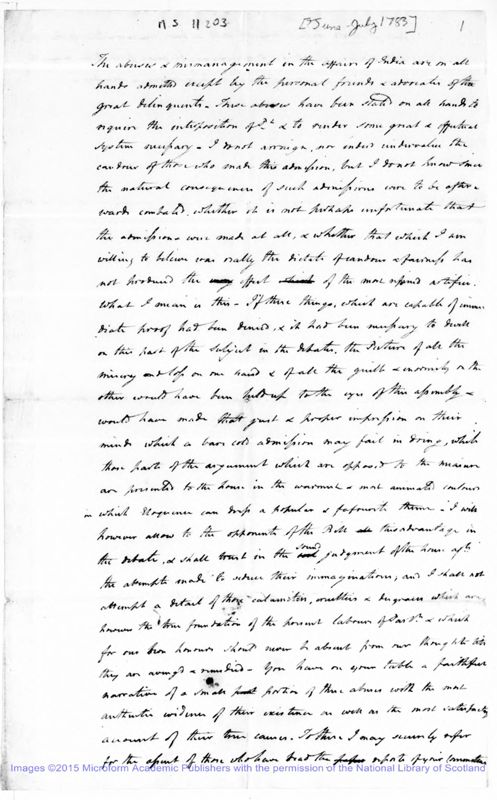 MS 11203 [? June-July 1783] 1
The abuses & mismanagement in the affairs of India are on all
hands admitted except by the personal friends & advocates of the
great delinquents - These abuses have been stated on all hands to
require the interposition of Pt. & to render some great & effectual
System necessary - I do not arraign, nor under undervalue the
candour of those who made this admission, but I do not know since
the natural consequences of such admissions were to be after
wards combated, whether it is not perhaps unfortunate that
the admissions were made at all, & whether that which I am
willing to believe was really the dictate of candour & fairness has
not produced the very effect of the most refined artifice.
What I mean is this - If these things, which are capable of imme
diate proof had been denied, & it had been necessary to dwell
on this part of the Subject in the debates, the Picture of all the
misery and loss on one hand & of all the guilt & enormity on the
other would have been held up to the eyes of this assembly &
would have made that just & proper impression on their
minds which a bare cold admission may fail in doing, while
those parts of the argument which are opposed to the measure
are presented to the house in the warmest & most animated colours
in which Eloquence can dress a popular & favourite theme - I will
however allow to the opponents of the Bill this advantage in
the debate, & shall trust in the sound judgment of the house agst.
the attempts made to seduce their immaginations, and I shall not
attempt a detail of those calamities, cruelties & disgraces which are
however the true foundation of the present labours of Parlt. & which
for our own honours should never be absent from our thoughts till
they are aveng'd & remedied - You have on your table a faithful
narrative of a small portion of these abuses with the most
authentic evidence of their existence as well as the most satisfactory
account of their true causes. To these I may securely refer
for the assent of those who have read the reports of your Committee
Images ©2015 Microform Academic Publishers with the permission of the National Library of Scotland